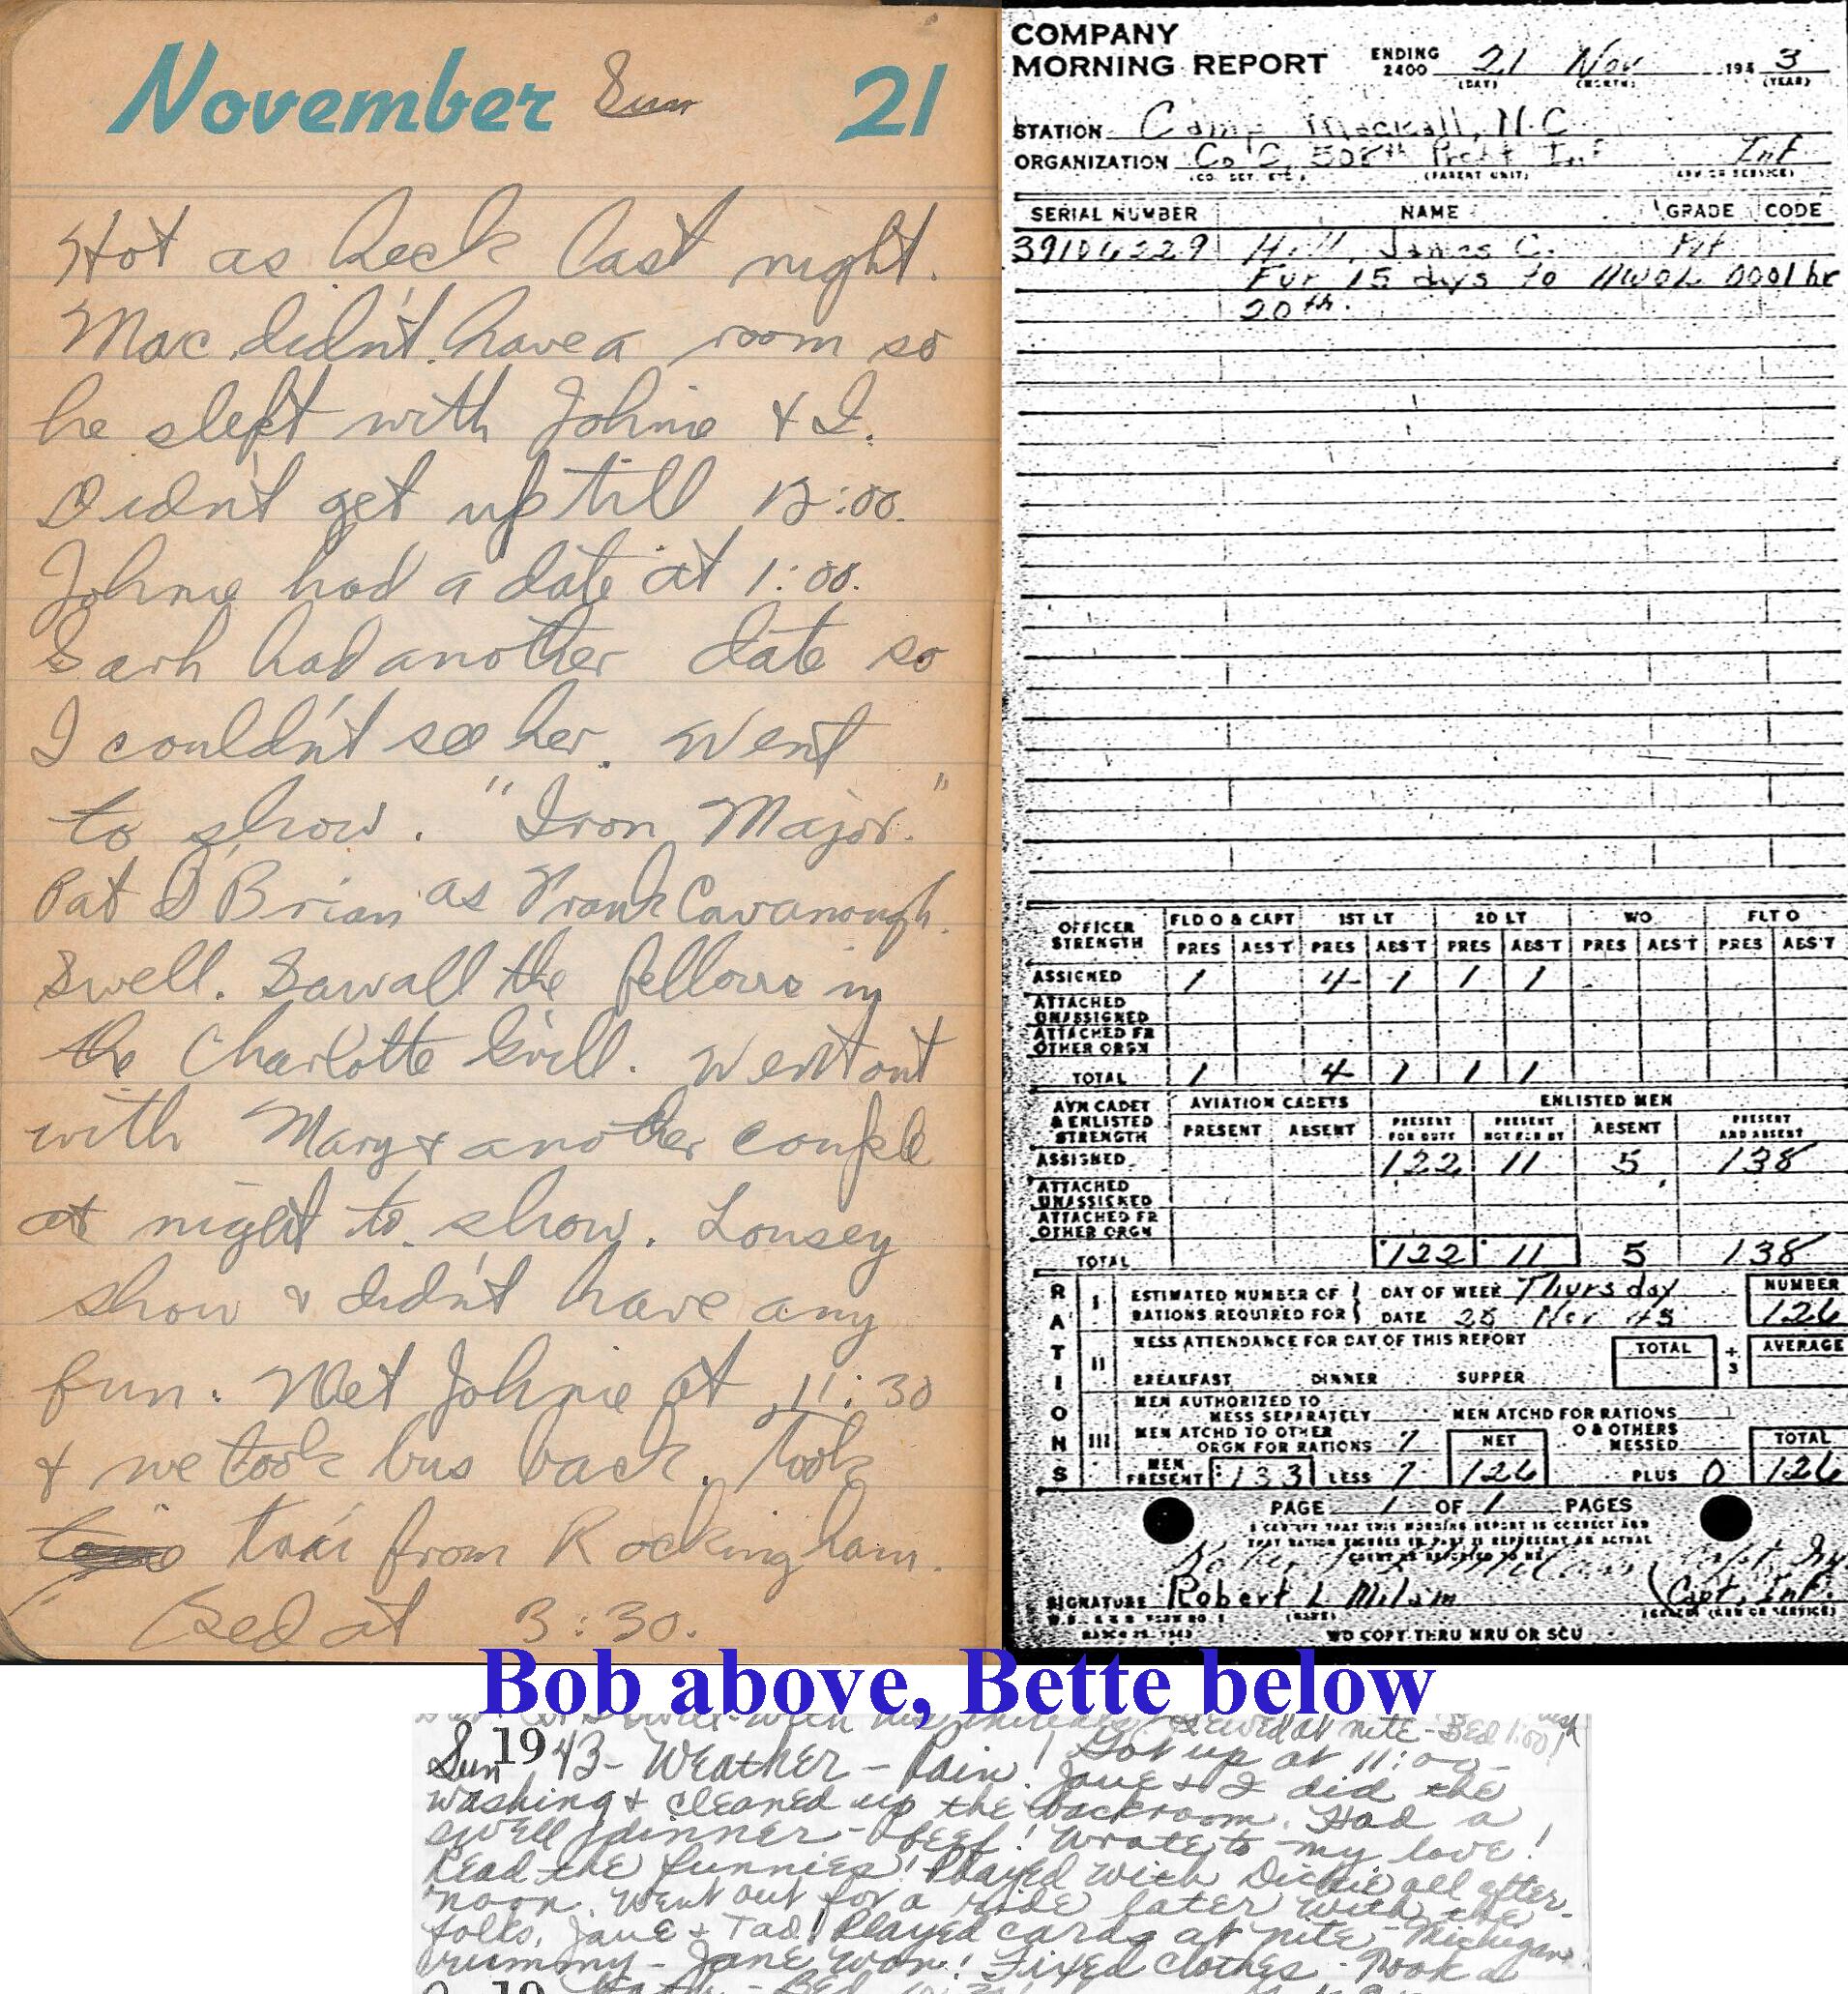 November Sun 21
Hot as heck last night.
Mac didn't have a room so
he slept with Johnie & I.
Didn't get up till 12:00.
Johnie had a date at 1:00.
Sarh had another date so
I couldn't see her. Went
to show. "Iron Major."
Pat O'Brian as Frank Cavanough.
Swell. Saw all the fellows in
the Charlotte Grill. Went out
with Mary & another couple
at night to show. Lousey
show & didn't have any
fun. Met Johnie at 11:30
& we took bus back. Took
taxi from Rockingham.
Bed at 3:30.
COMPANY
MORNING REPORT ENDING 2400 21 Nov 194 3
(DAY) (MONTH) (YEAR)
STATION Camp Mackall, N.C.
ORGANIZATION Co C, 508th Prcht Inf Inf
(CO. DET. ETC.) (PARENT UNIT) (ARM OR SERVICE)
SERIAL NUMBER NAME GRADE CODE
39106229 Hill, James C. Pvt
Fur 15 days to AWOL 0001 hr
20th.
OFFICER STRENGTH FLD O & CAPT 1ST LT 2D LT WO FLT O
PRES ABS'T PRES ABS'T PRES ABS'T PRES ABS'T PRES ABS'T
ASSIGNED 1 4 1 1 1
ATTACHED UNASSIGNED
ATTACHED FR OTHER ORGN
TOTAL 1 4 1 1 1
AVN CADET & ENLISTED STRENGTH AVIATION CADETS ENLISTED MEN
PRESENT ABSENT PRESENT FOR DUTY PRESENT NOT FOR DUTY ABSENT PRESENT AND ABSENT
ASSIGNED 122 11 5 138
ATTACHED UNASSIGNED
ATTACHED FR OTHER ORGN
TOTAL 122 11 5 138
RATIONS
I ESTIMATED NUMBER OF RATIONS REQUIRED FOR DAY OF WEEK Thursday NUMBER
DATE 25 Nov 43 126
II MESS ATTENDANCE FOR DAY OF THIS REPORT TOTAL ÷ 3 AVERAGE
BREAKFAST DINNER SUPPER
III MEN AUTHORIZED TO MESS SEPARATELY MEN ATCHD FOR RATIONS
MEN ATCHD TO OTHER ORGN FOR RATIONS 7 NET O & OTHERS MESSED TOTAL
MEN PRESENT 133 LESS 7 126 PLUS 0 126
PAGE 1 OF 1 PAGES
I CERTIFY THAT THIS MORNING REPORT IS CORRECT AND
THAT RATION FIGURES IN PART III REPRESENT AN ACTUAL
COUNT AS REPORTED TO ME
Capt, Inf
SIGNATURE Robert L Milam Capt, Inf
(NAME) (GRADE) (ARM OR SERVICE)
MARCH 25, 1943 WD COPY THRU MRU OR SCU
Bob above, Bette below
with his initials Sewed at nite - Bed 1:00!
Sun 1943 - Weather - Rain! Got up at 11:00 -
Jane & I did the
washing & cleaned up the backroom. Had a
swell dinner - beef! Wrote to my love!
Read the funnies! Played with Dickie all after-
noon. Went out for a ride later with the
folks, Jane & Tad! Played cards at nite - Michigan
rummy - Jane won! Fixed clothes - Took a
19 Bed